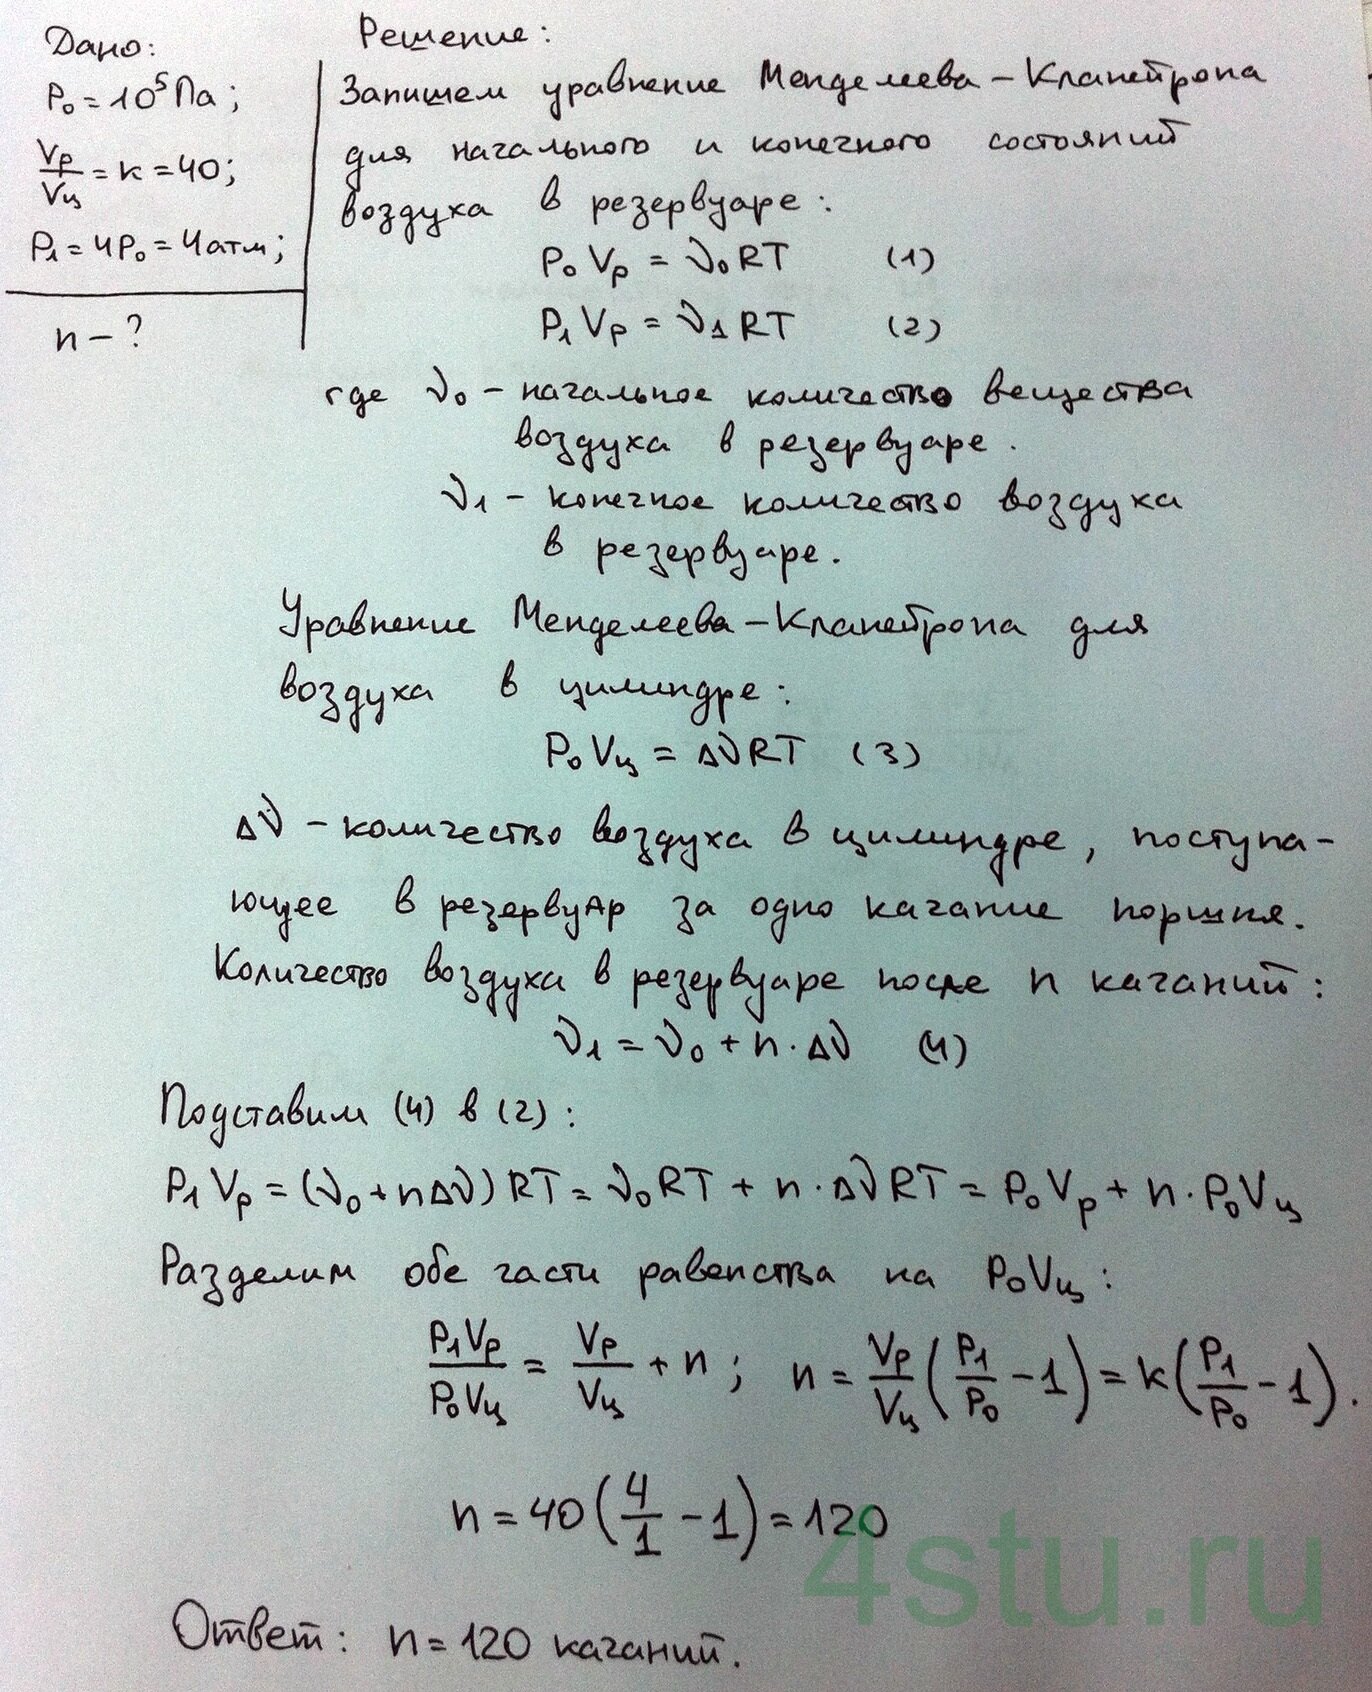 Дано:
P₀ = 10⁵ Па;
Vр/Vц = k = 40;
P₁ = 4P₀ = 4атм;
n – ?
Решение:
Запишем уравнение Менделеева – Клапейрона
для начального и конечного состояний
воздуха в резервуаре:
P₀Vр = ν₀RT (1)
P₁Vр = ν₁RT (2)
где ν₀ – начальное количество вещества
воздуха в резервуаре.
ν₁ – конечное количество воздуха
в резервуаре.
Уравнение Менделеева – Клапейрона для
воздуха в цилиндре:
P₀Vц = ΔνRT (3)
Δν – количество воздуха в цилиндре, поступа-
ющее в резервуАр за одно качание поршня.
Количество воздуха в резервуаре после n качаний:
ν₁ = ν₀ + n · Δν (4)
Подставим (4) в (2):
P₁Vр = (ν₀ + nΔν)RT = ν₀RT + n · ΔνRT = P₀Vр + n · P₀Vц
Разделим обе части равенства на P₀Vц:
P₁Vр/P₀Vц = Vр/Vц + n; n = Vр/Vц (P₁/P₀ – 1) = k(P₁/P₀ – 1).
n = 40(4/1 – 1) = 120
4stu.ru
Ответ: n = 120 качаний.